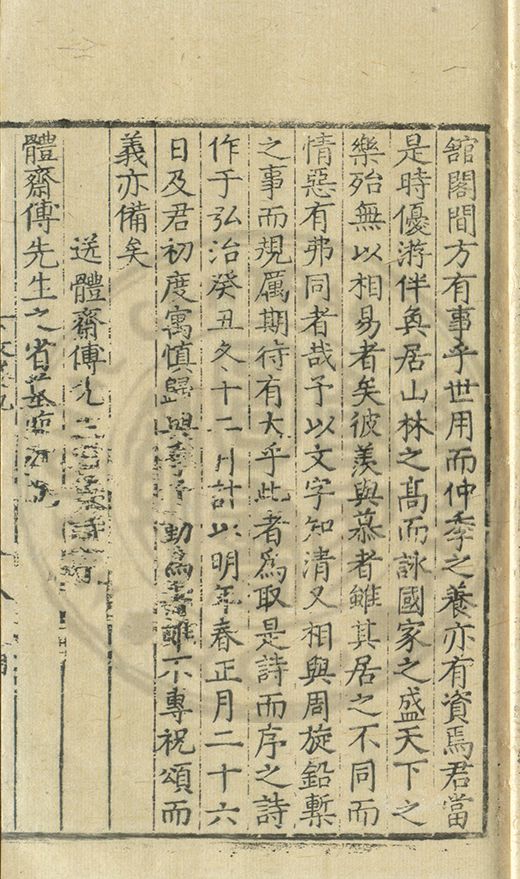 舘閣間方有事乎世用而仲季之養亦有資焉君當
是時優游伴奐居山林之髙而詠國家之盛天下之
樂殆無以相易者矣彼羡與慕者雖其居之不同而
情惡有弗同者哉予以文字知清又相與周旋鉛槧
之事而規厲期待有大乎此者為取是詩而序之詩
作于弘治癸丑冬十二月計以明年春正月二十六
日及君初度寓慎歸與 動為 雖不專祝頌而
義亦備矣
送體齋傅先生
體齋傅先生之省